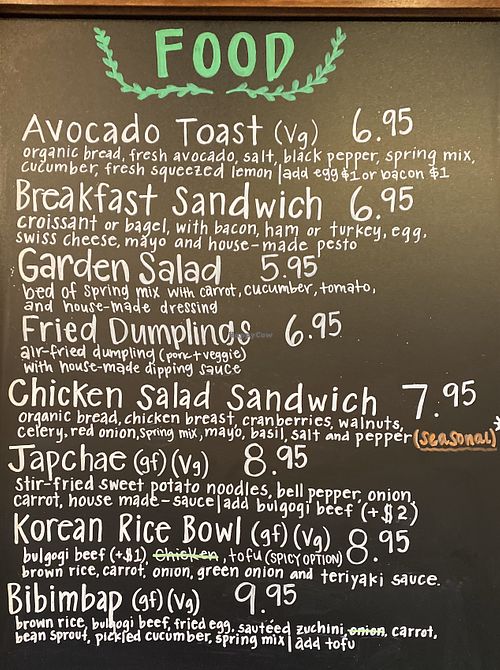 FOOD
Avocado Toast (Vg) 6.95
organic bread, fresh avocado, salt, black pepper, spring mix,
cucumber, fresh squeezed lemon | add egg $1 or bacon $1
Breakfast Sandwich 6.95
croissant or bagel, with bacon, ham or turkey, egg,
swiss cheese, mayo and house-made pesto
Garden Salad 5.95
bed of spring mix with carrot, cucumber, tomato,
and house-made dressing
Fried Dumplings 6.95
air-fried dumpling (pork + veggie)
with house-made dipping sauce
Chicken Salad Sandwich 7.95
organic bread, chicken breast, cranberries, walnuts,
celery, red onion, spring mix, mayo, basil, salt and pepper (seasonal)*
Japchae (gf) (Vg) 8.95
stir-fried sweet potato noodles, bell pepper, onion,
carrot, house made-sauce | add bulgogi beef (+$2)
Korean Rice Bowl (gf) (Vg) 8.95
bulgogi beef (+$1), chicken, tofu (SPICY OPTION)
brown rice, carrot, onion, green onion and teriyaki sauce.
Bibimbap (gf) (Vg) 9.95
brown rice, bulgogi beef, fried egg, sautéed zuchini, onion, carrot,
bean sprout, pickled cucumber, spring mix | add tofu